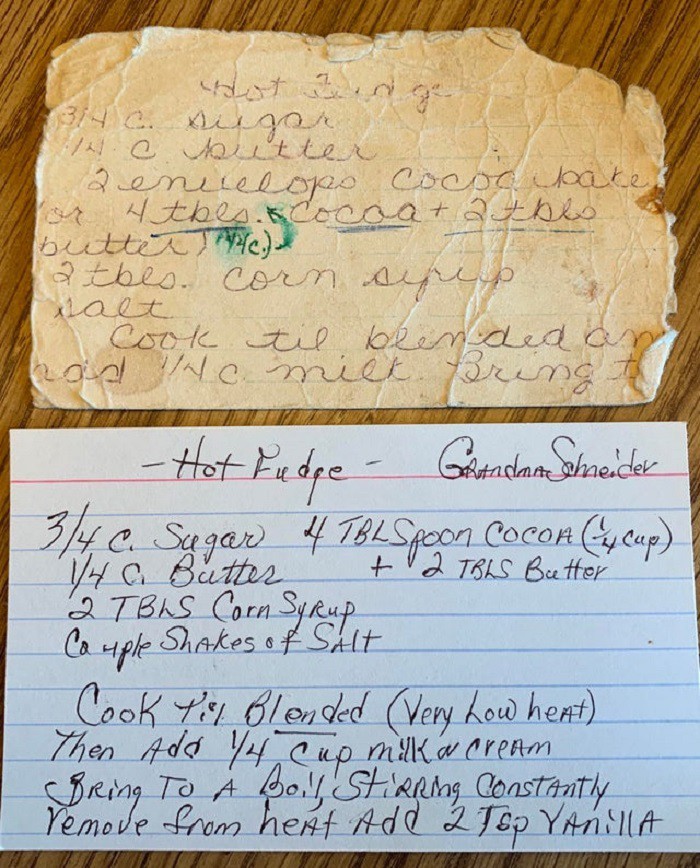 Hot Fudge
3/4 c. sugar
1/4 c butter
2 envelops cocoa bake
or 4 tbls. cocoa + 2 tbls
butter) (1/4 c.)
2 tbls. corn syrup
salt
Cook til blended an
add 1/4 c. milk. Bring t
- Hot Fudge - Grandma Schneider
3/4 c. Sugar 4 TBLSpoon COCOA (1/4 cup)
1/4 C. Butter + 2 TBLS Butter
2 TBLS Corn Syrup
Couple Shakes of SAlt
Cook til Blended (Very Low heAt)
Then Add 1/4 Cup milk or CReAm
BRing To A Boil StiRRing ConstAntly
remove from heAt Add 2 Tsp VAnillA